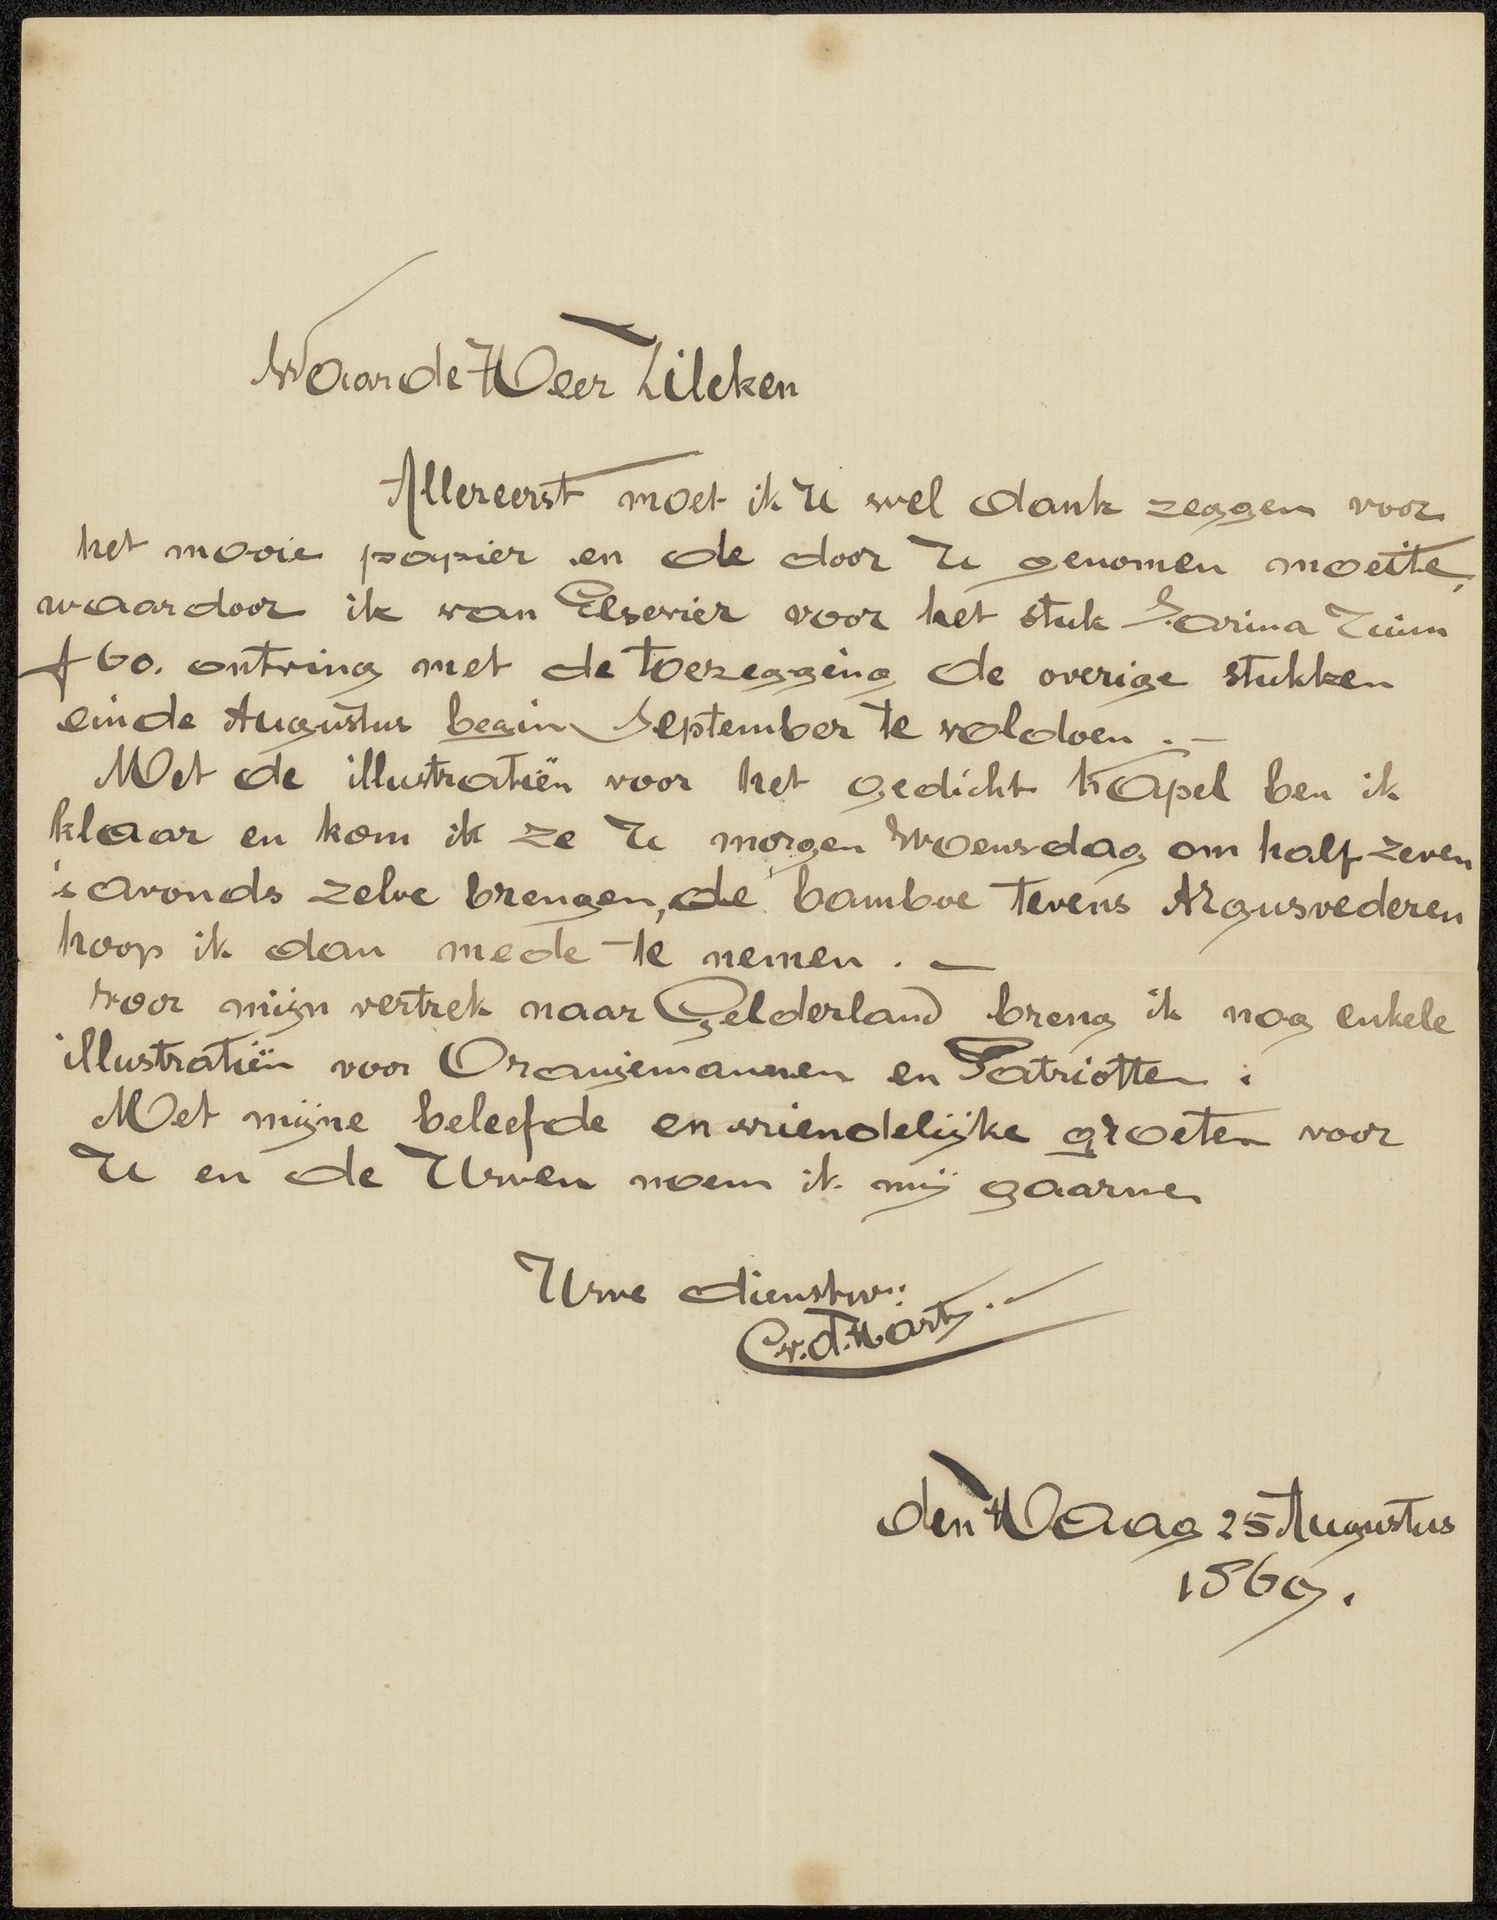 Waarde Heer Zilcken
Allereerst moet ik U wel dank zeggen voor
het mooie papier en de door U genomen moeite,
waardoor ik van Elsevier voor het stuk
f 60. ontving met de toezegging de overige stukken
einde Augustus begin September te voldoen . —
Met de illustratiën voor het gedicht Kapel ben ik
klaar en kom ik ze U morgen Woensdag om half zeven
's avonds zelve brengen, de bamboe tevens Argusvederen
hoop ik dan mede te nemen . —
Voor mijn vertrek naar Gelderland breng ik nog enkele
illustratiën voor Oranjemannen en Patriotten .
Met mijne beleefde en vriendelijke groeten voor
U en de Uwen noem ik mij gaarne
Uwe dienstw:
C v. d. Hart
den Haag 25 Augustus